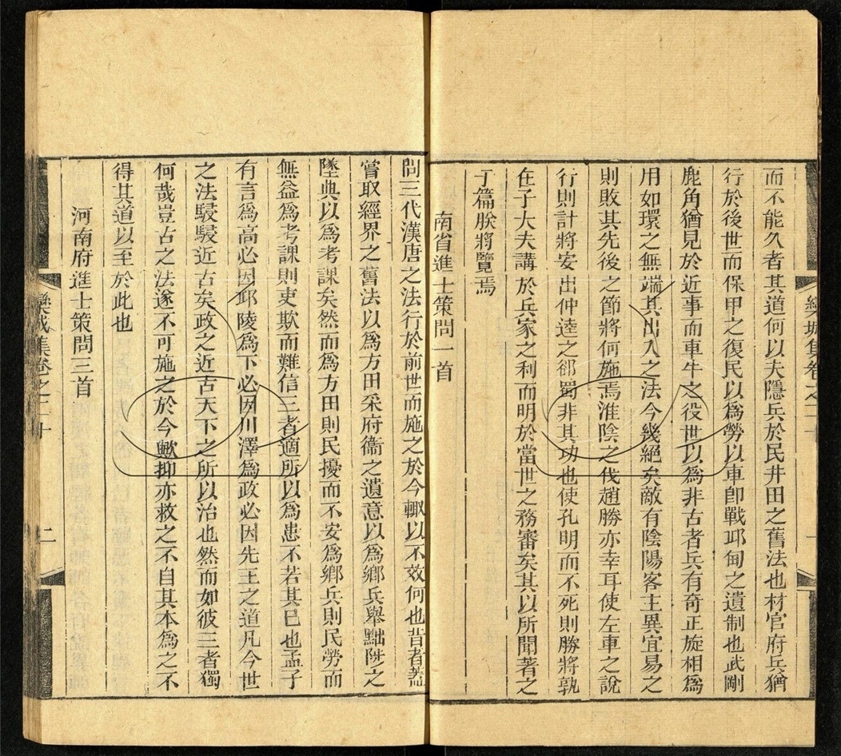 而不能久者其道何以夫隱兵於民井田之舊法也材官府兵猶
行於後世而保甲之復民以爲勞以車卽戰邱甸之遺制也武剛
鹿角猶見於近事而車牛之役世以爲非古者兵有奇正旋相爲
用如環之無端其出入之法今幾絕矣敵有陰陽客主異宜易之
則敗其先後之節將何施焉淮陰之伐趙勝亦幸耳使左車之說
行則計將安出仲達之卻蜀非其功也使孔明而不死則勝將孰
在子大夫講於兵家之利而明於當世之務審矣其以所聞著之
于篇朕將覽焉
南省進士策問一首
問三代漢唐之法行於前世而施之於今輒以不效何也昔者蓋
嘗取經界之舊法以爲方田采府衞之遺意以爲鄉兵舉黜陟之
墜典以爲考課矣然而爲方田則民擾而不安爲鄉兵則民勞而
無益爲考課則吏欺而難信三者適所以爲患不若其已也孟子
有言爲高必因邱陵爲下必因川澤爲政必因先王之道凡今世
之法駸駸近古矣政之近古天下之所以治也然而如彼三者獨
何哉豈古之法遂不可施之於今歟抑亦救之不自其本爲之不
得其道以至於此也
河南府進士策問三首
欒城集卷之二十
二